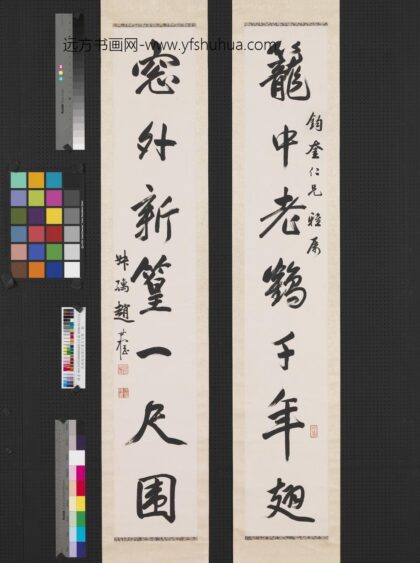 远方书画网-www.yfshuhua.com
籠中老鶴千年翅
鈞奎仁兄雅属
窓外新篁一尺围
叔孺趙